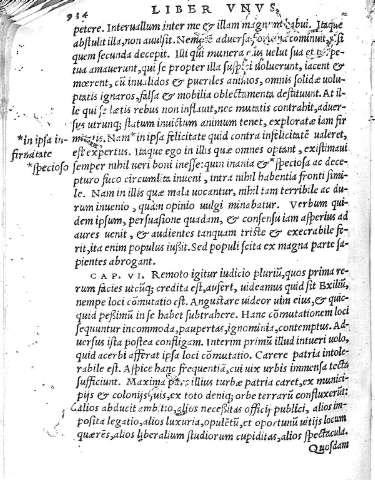 934 LIBER VNVS,
petere. Interuallum inter me & illam magnum habui. Itaque
abstulit illa, non auulsit. Neminem aduersa fortuna cominuit, nisi
quem secunda decepit. Illi qui munera eius uelut sua et perpe-
tua amauerunt, qui se propter illa suspici uoluerunt, iacent &
mœrent, cũ inualidos & pueriles animos, omnis solidæ uolu-
ptatis ignaros, falsa & mobilia oblectamenta destituunt. At il-
le qui se lætis rebus non inflauit, nec mutatis contrahit, aduer-
sus utrunq; statum inuictum animum tenet, exploratæ iam fir-
*in ipsa in- mitatis. Nam *in ipsa felicitate quid contra infelicitatẽ ualeret,
firmitate est expertus. Itaque ego in illis quæ omnes optant, existimaui
*specioso semper nihil ueri boni inesse: quin inania & *speciosa ac dece-
pturo fuco circumlita inueni, intra nihil habentia fronti simi-
le. Nam in illis quæ mala uocantur, nihil tam terribile ac du-
rum inuenio, quàm opinio uulgi minabatur. Verbum qui-
dem ipsum, persuasione quadam, & consensu iam asperius ad
aures uenit, & audientes tanquam triste & execrabile fe-
rit, ita enim populus iussit. Sed populi scita ex magna parte sa-
pientes abrogant.
CAP. VI. Remoto igitur iudicio pluriũ, quos prima re-
rum facies utcũq; credita est, aufert, uideamus quid sit Exiliũ,
nempe loci cõmutatio est. Angustare uideor uim eius, & quic-
quid pessimũ in se habet subtrahere. Hanc cõmutationem loci
sequuntur incommoda, paupertas, ignominia, contemptus. Ad-
uersus ista postea confligam. Interim primũ illud intueri uolo,
quid acerbi afferat ipsa loci cõmutatio. Carere patria intole-
rabile est. Aspice hanc frequentiã, cui uix urbis immensa tecta
sufficiunt. Maxima pars illius turbæ patria caret, ex munici-
pijs & colonijs suis, ex toto deniq; orbe terrarũ confluxerũt:
alios abducit ambitio, alios necessitas officij publici, alios im-
posita legatio, alios luxuria, opulẽtũ, et oportunũ uitijs locum
quærẽs, alios liberalium studiorum cupiditas, alios spectacula.
Quosdam